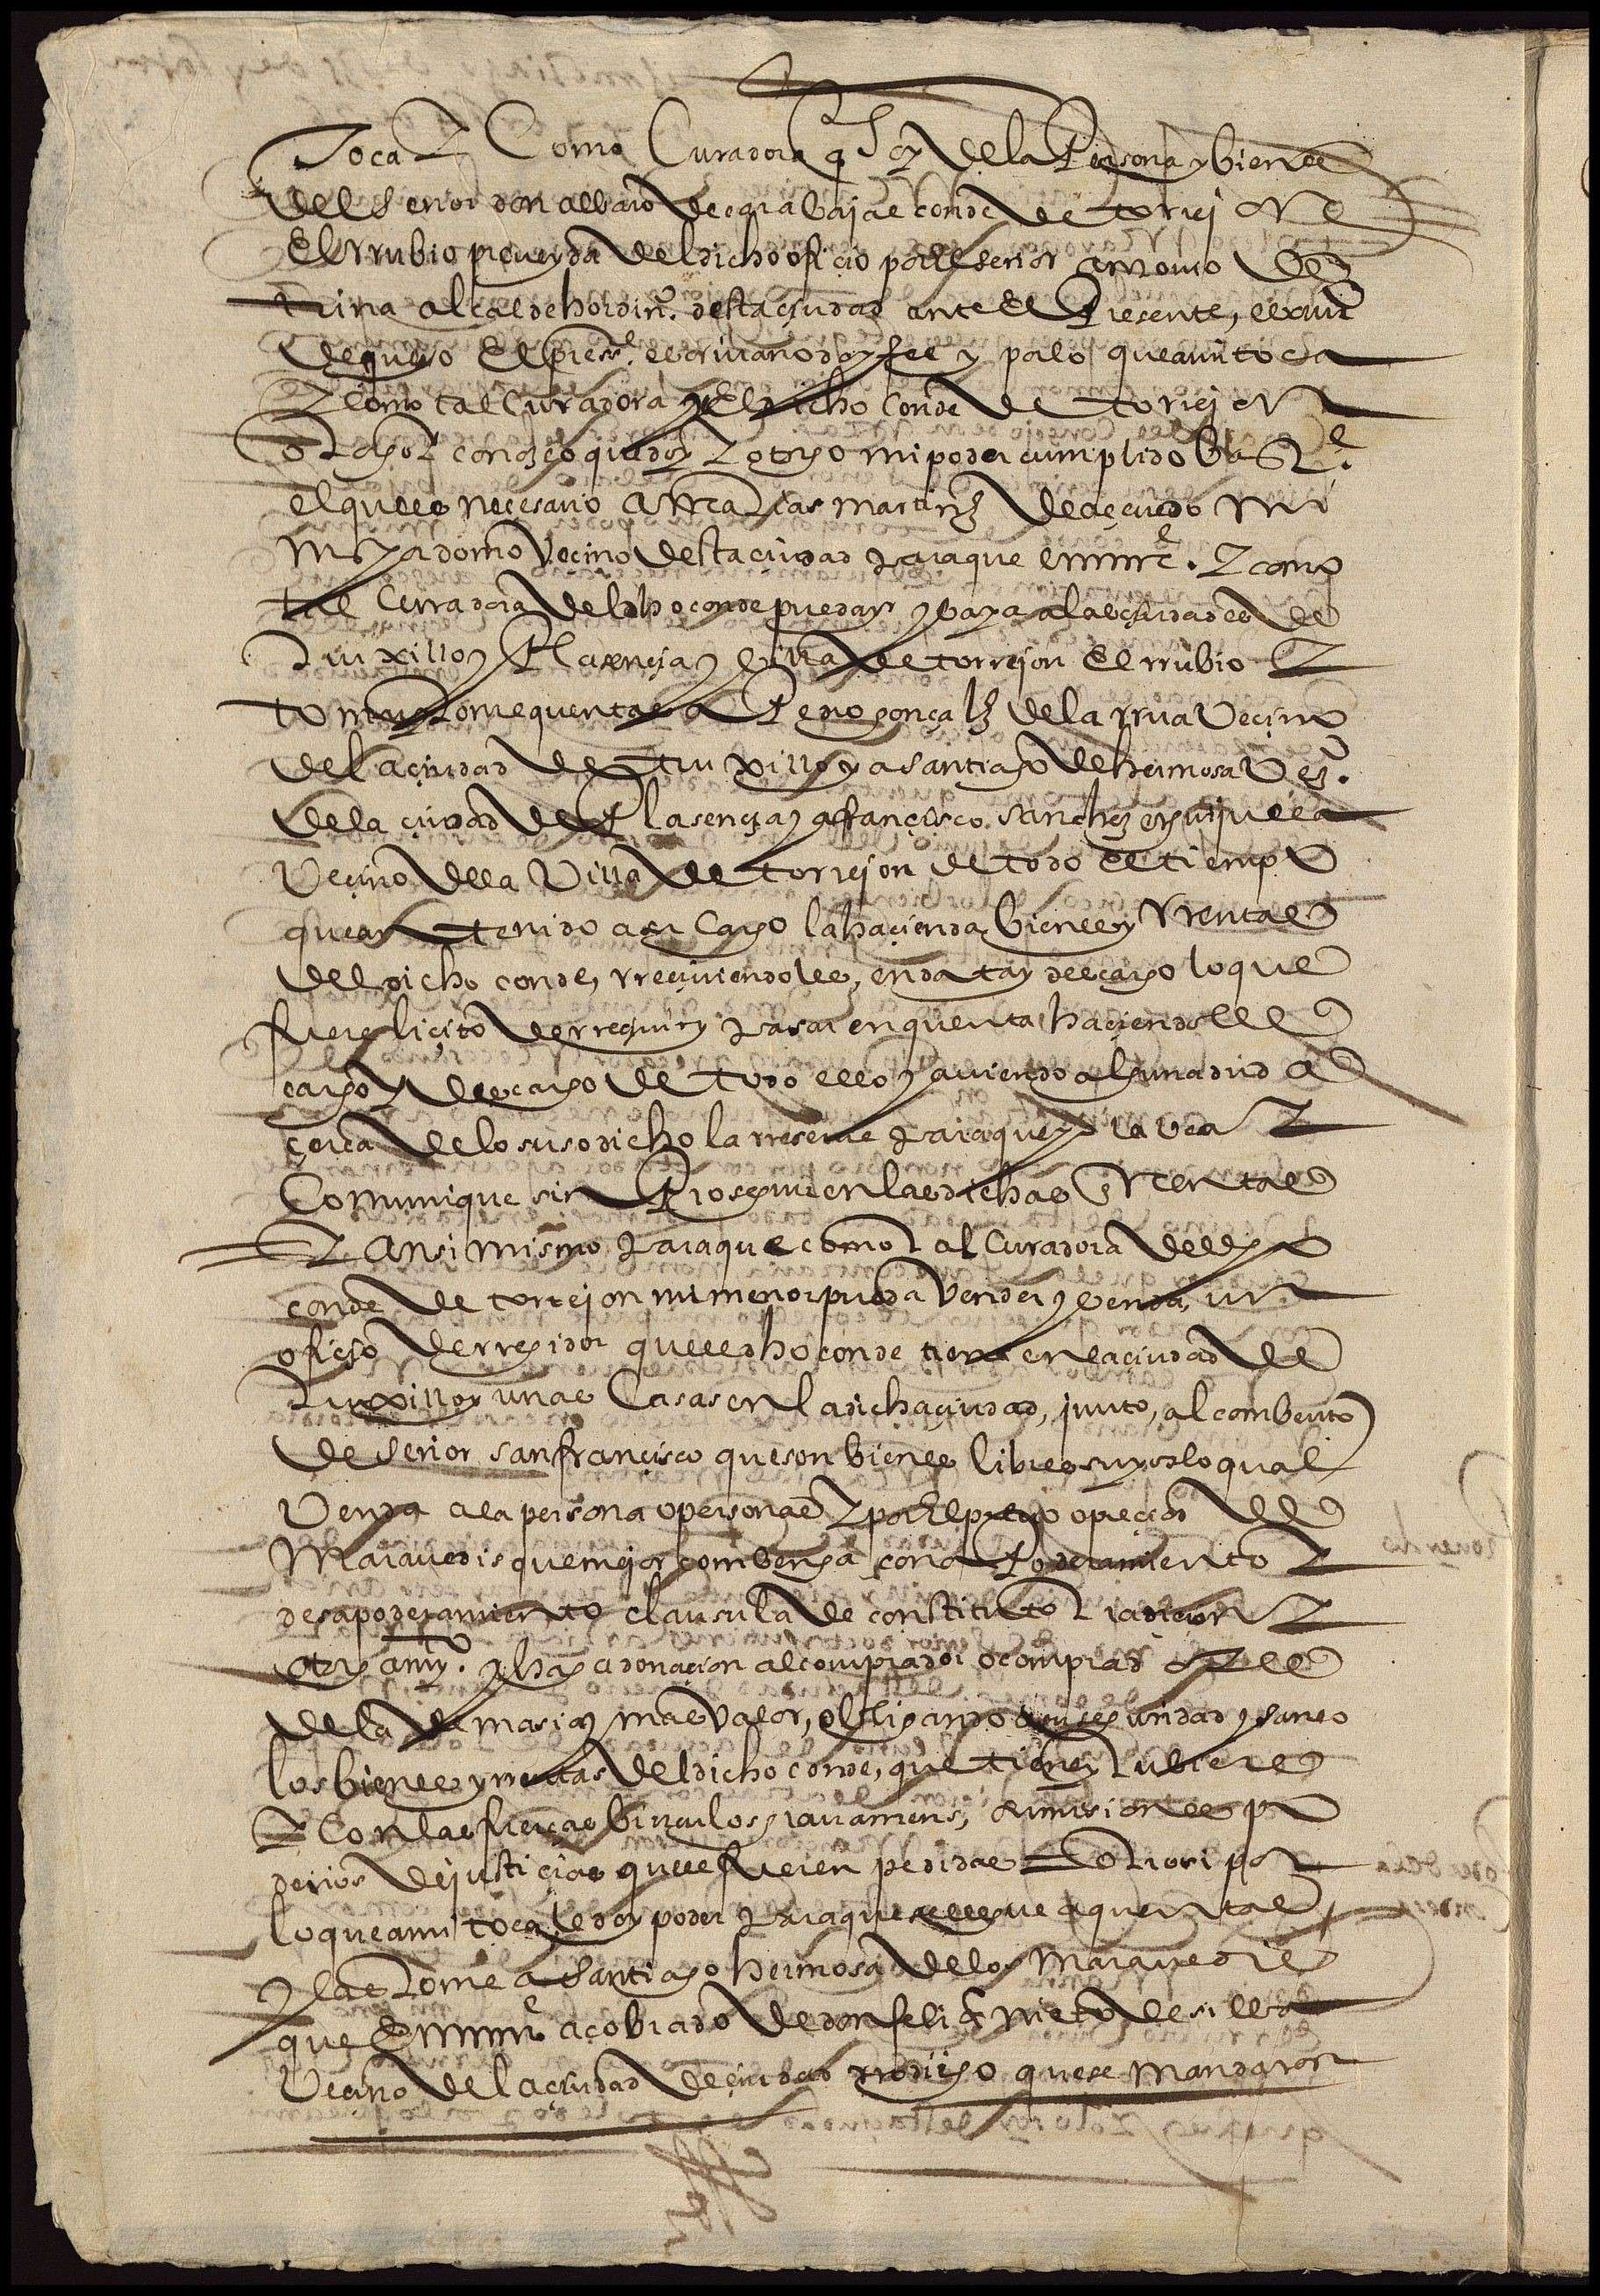 Toca y Como Curadora q soy de la Persona y bienes
del Señor don albaro de carabajal conde de torrej on
El rrubio proveyda del dicho oficio por El señor antonio
alcalde hordinº. desta çiudad ante El Presente, escriuº
de que yo El presᵉ escriuano doy fee y por lo que a mi toca
y Como tal Curadora del dicho Conde de torrej on
otorgo y conozco que doy y otorgo mi poder cumplido bastᵉ.
el que es neçesario a matias martinz de açeuedo mi
mayordomo Veçino desta çiudad para que en mi nᵉ. y como
tal Curradora del dho conde pueda yr y vaya a las çiudades de
truxillo y Plasençia y villa de torrejon El rrubio y
tomar y tome quentas a Pedro gonçalz de la rrua Veçino
de la çiudad de truxillo y a santiago de hermosa Vezº.
de la çiudad de Plasençia y a françisco sanchez
Veçino de la Villa de torrejon de todo el tiempo
que an tenido a su Cargo la haçienda, bienes y Rrentas
del dicho conde, rreçiuiendoles, en data y descargo lo que
fuere liçito de rreçiuir y pasar en quenta haçiendoles
cargo y descargo de todo ello y auiendo alguna dud a
çerca de lo suso dicho la rreserue para que yo la vea y
Comunique sin Proseguir en las dichas quentas
y ansi mismo para que como tal Curadora del dho
conde de torrejon mi menor pueda Vender y benda, un
ofiçio de rregidor que el dho conde tiene en la çiudad de
truxillo y unas Casas en la dicha çiudad, junto, al combento
de señor san françisco que son bienes libres suyos lo qual
Venda a la persona o personas y por El preçio o preçios de
Marauedis que mejor combenga con a Poderamiento y
desapoderamiento clausula de constituto tradiçion y
otorgamyº. y haga donaçion al comprador o comprad ores
de la demasia y mas valor, obligando a su seguridad y saneo
los bienes y rrentas del dicho conde, que tiene y tubiere
y Con las fuerças binculos grauamens, sumisiones y po
derios de justiçias que le fueren pedidas = Otrosi por
lo que a mi toca, le doy poder para que llegue a quentas,
y las tome a santiago hermosa de los Marauedis
que En mi nᵉ a cobrado de don feliz nieto de silba
Veçino de la çiudad de çiudad rrodrigo que se mandaron